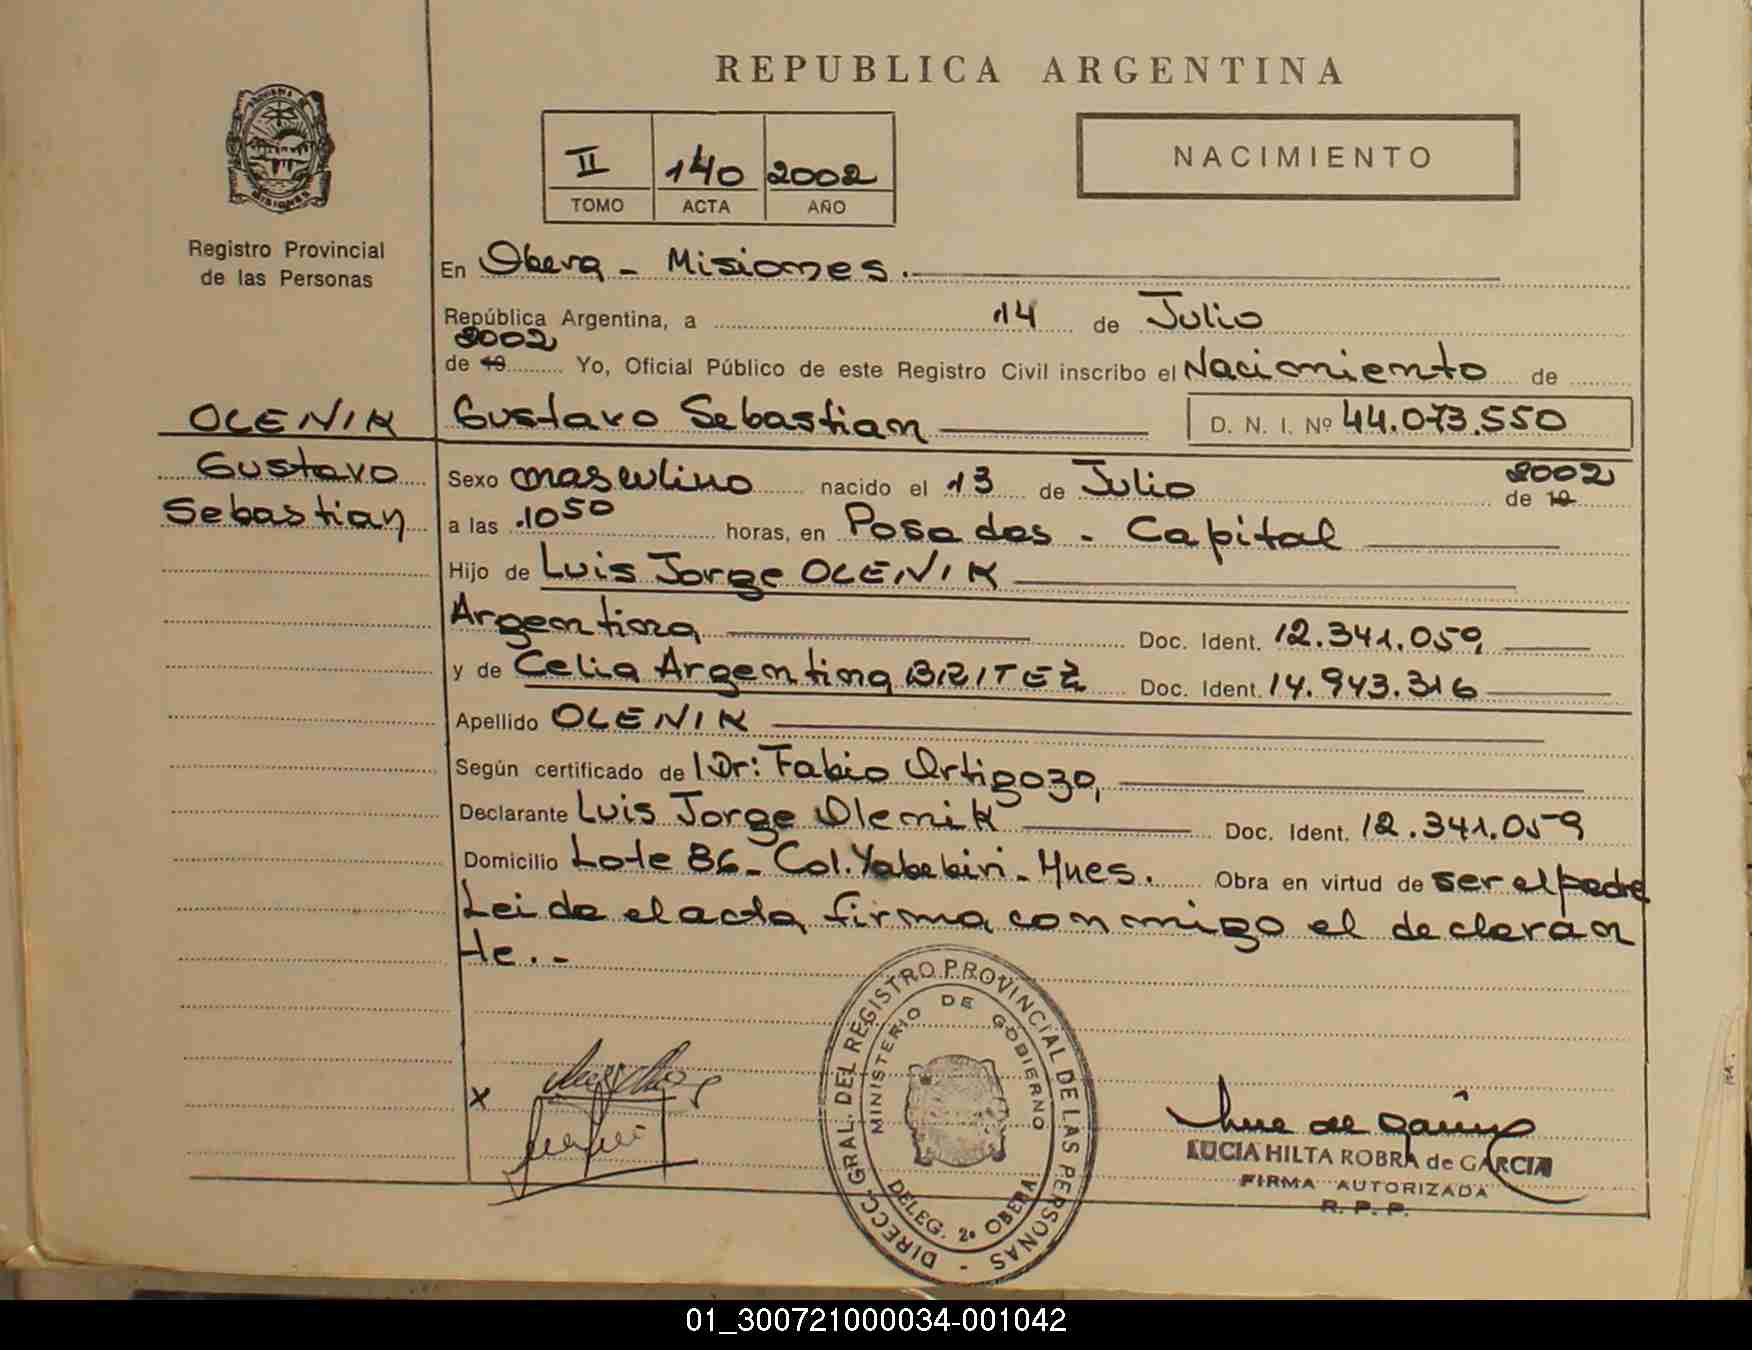 REPUBLICA ARGENTINA
II 140 2002
TOMO ACTA AÑO
NACIMIENTO
Registro Provincial
de las Personas
OLENIK
Gustavo
Sebastian
En Obera - Misiones.
República Argentina, a 14 de Julio
2002
de 19 Yo, Oficial Público de este Registro Civil inscribo el Nacimiento de
Gustavo Sebastian D. N. I. Nº 44.073.550
Sexo masculino nacido el 13 de Julio de 19 2002
a las 10 50 horas, en Posadas - Capital
Hijo de Luis Jorge OLENIK
Argentina Doc. Ident. 12.341.059
y de Celia Argentina BRITEZ Doc. Ident. 14.943.316
Apellido OLENIK
Según certificado de Dr: Fabio Ortigoza
Declarante Luis Jorge Olenik Doc. Ident. 12.341.059
Domicilio Lote 86 - Col. Yabebiri - Mnes. Obra en virtud de ser el padre
Leida el acta firma conmigo el declaran
te . -
x
DIRECC. GRAL. DEL REGISTRO PROVINCIAL DE LAS PERSONAS -
MINISTERIO DE GOBIERNO
DELEG. 2º OBERA
LUCIA HILTA ROBRA de GARCIA
FIRMA AUTORIZADA
R. P. P.
01_300721000034-001042